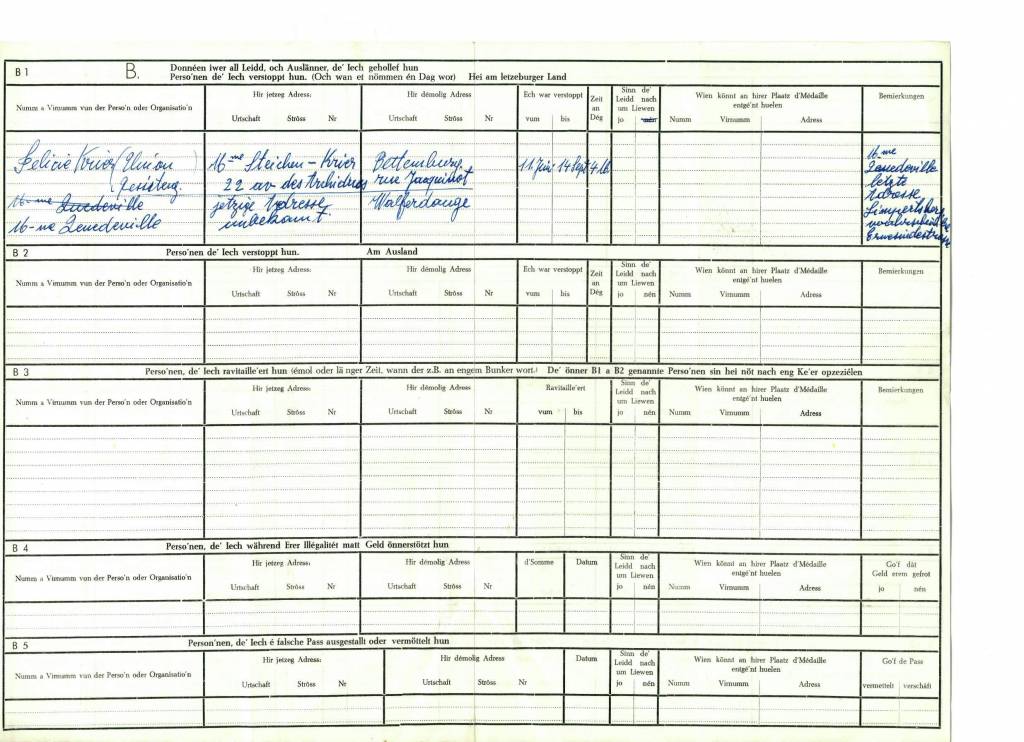 B 1 B. Donnéen iwer all Leidd, och Auslänner, de' Iech gehollef hun
Perso'nen de' Iech verstoppt hun. (Och wan et nömmen én Dag wor) Hei am letzeburger Land
Numm a Virnumm vun der Perso'n oder Organisatio'n
Hir jetzeg Adress:
Urtschaft Ströss Nr
Hir démolig Adress
Urtschaft Ströss Nr
Ech war verstoppt
vum bis
Zeit
an
Dég
Sinn de'
Leidd nach
um Liewen
jo nén
Wien könnt an hirer Plaatz d'Médaille
entgé'nt huelen
Numm Virnumm Adress
Bemierkungen
Felicie Krier (Union
Resisteng.
M-me Zenedeville
M-me Zenedeville
M-me Steichen-Krier
22 av des Archiducs
jetzige Adresse
unbekannt.
Bettemburg
rue Jaquinot
Walferdange
11 Juni 14 Sept 4.
M-me
Zenedeville
letzte
Adresse
Limpertsberg
Ermesindestrasse
B 2 Perso'nen de' Iech verstoppt hun. Am Ausland
Numm a Virnumm vun der Perso'n oder Organisatio'n
Hir jetzeg Adress:
Urtschaft Ströss Nr
Hir démolig Adress
Urtschaft Ströss Nr
Ech war verstoppt
vum bis
Zeit
an
Dég
Sinn de'
Leidd nach
um Liewen
jo nén
Wien könnt an hirer Plaatz d'Médaille
entgé'nt huelen
Numm Virnumm Adress
Bemierkungen
B 3 Perso'nen, de' Iech ravitaille'ert hun (émol oder länger Zeit, wann der z.B. an engem Bunker wort.) De' önner B1 a B2 genannte Perso'nen sin hei nöt nach eng Ke'er opzeziélen
Numm a Virnumm vun der Perso'n oder Organisatio'n
Hir jetzeg Adress:
Urtschaft Ströss Nr
Hir démolig Adress
Urtschaft Ströss Nr
Ravitaille'ert
vum bis
Sinn de'
Leidd nach
um Liewen
jo nén
Wien könnt an hirer Plaatz d'Médaille
entgé'nt huelen
Numm Virnumm Adress
Bemierkungen
B 4 Perso'nen, de' Iech während Erer Illégalitét matt Geld önnerstötzt hun
Numm a Virnumm vun der Perso'n oder Organisatio'n
Hir jetzeg Adress:
Urtschaft Ströss Nr
Hir démolig Adress
Urtschaft Ströss Nr
d'Somme
Datum
Sinn de'
Leidd nach
um Liewen
jo nén
Wien könnt an hirer Plaatz d'Médaille
entgé'nt huelen
Numm Virnumm Adress
Go'f dât
Geld erem gefrot
jo nén
B 5 Person'nen, de' Iech é falsche Pass ausgestallt oder vermöttelt hun
Numm a Virnumm vun der Perso'n oder Organisatio'n
Hir jetzeg Adress:
Urtschaft Ströss Nr
Hir démolig Adress
Urtschaft Ströss Nr
Datum
Sinn de'
Leidd nach
um Liewen
jo nén
Wien könnt an hirer Plaatz d'Médaille
entgé'nt huelen
Numm Virnumm Adress
Go'f de Pass
vermettelt verschâft